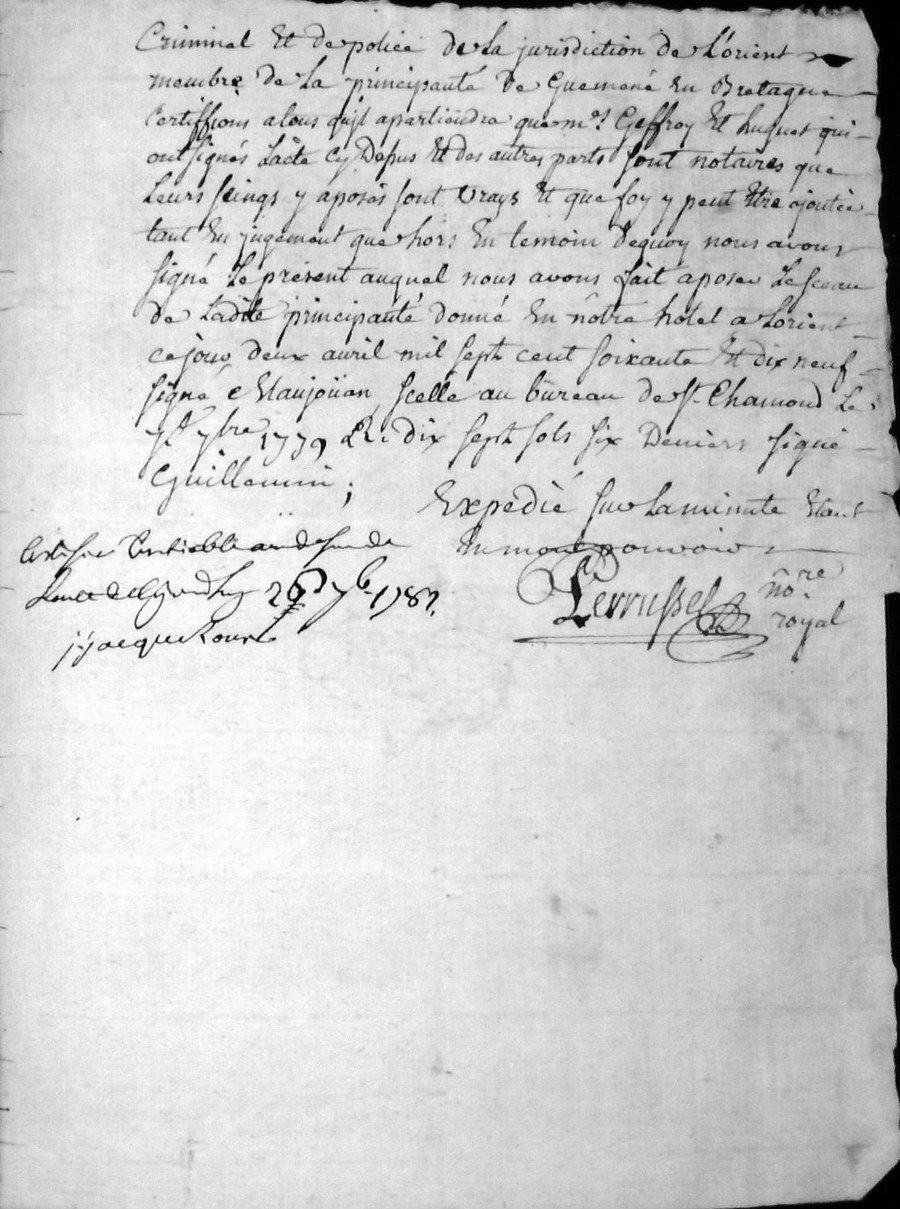 Criminel Et de police de La jurisdiction de L'orient
membre de La principauté de Guemené En Bretagne
Certiffions a tous qu'il apartiendra que m.es Geffroy Et huguet qui
ont signés L'acte Cy Depus Et des autres parts sont notaires que
Leurs seings y aposés sont vrays Et que foy y peut Etre ajoutée
tant En jugement que hors En temoin dequoy nous avons
signé Le présent auquel nous avons fait aposer Le sceau
de Ladite principauté donné En nôtre hotel a Lorient
ce jour deux avril mil sept cent soixante Et dix neuf
signé scellé au bureau de St. Chamond Le
7bre 1779 R. dix sept sols six Deniers signé
Guillemin ;
Expedié sur La minute Etant
En mon pouvoir
29 7bre 1787.
j jacque
Perrussel nôre
royal